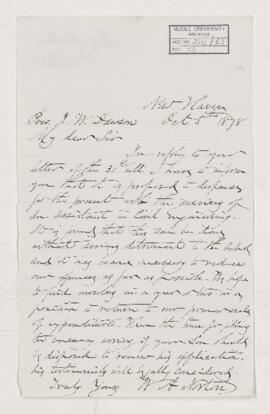 McGILL UNIVERSITY
ARCHIVES
ACC. NO.
REF.
New Haven
Oct 5th 1878
J. W. Dawson
My dear Sir
In reply to your
letter of the 30th ult I have to inform
you that it is proposed to dispense
for the present with the services of
an assistant in Civil Engineering.
It is found that this can be done
without serious detriment to the School
and it has become necessary to reduce
our expenses as far as possible. We hope
to find ourselves in a year or two in a
position to return to our former scale
of expenditures. When the time for filling
the vacancy arrives, if your Son should
be disposed to renew his application
his testimonials will be fully considered.
Truly Yours W. A. Norton